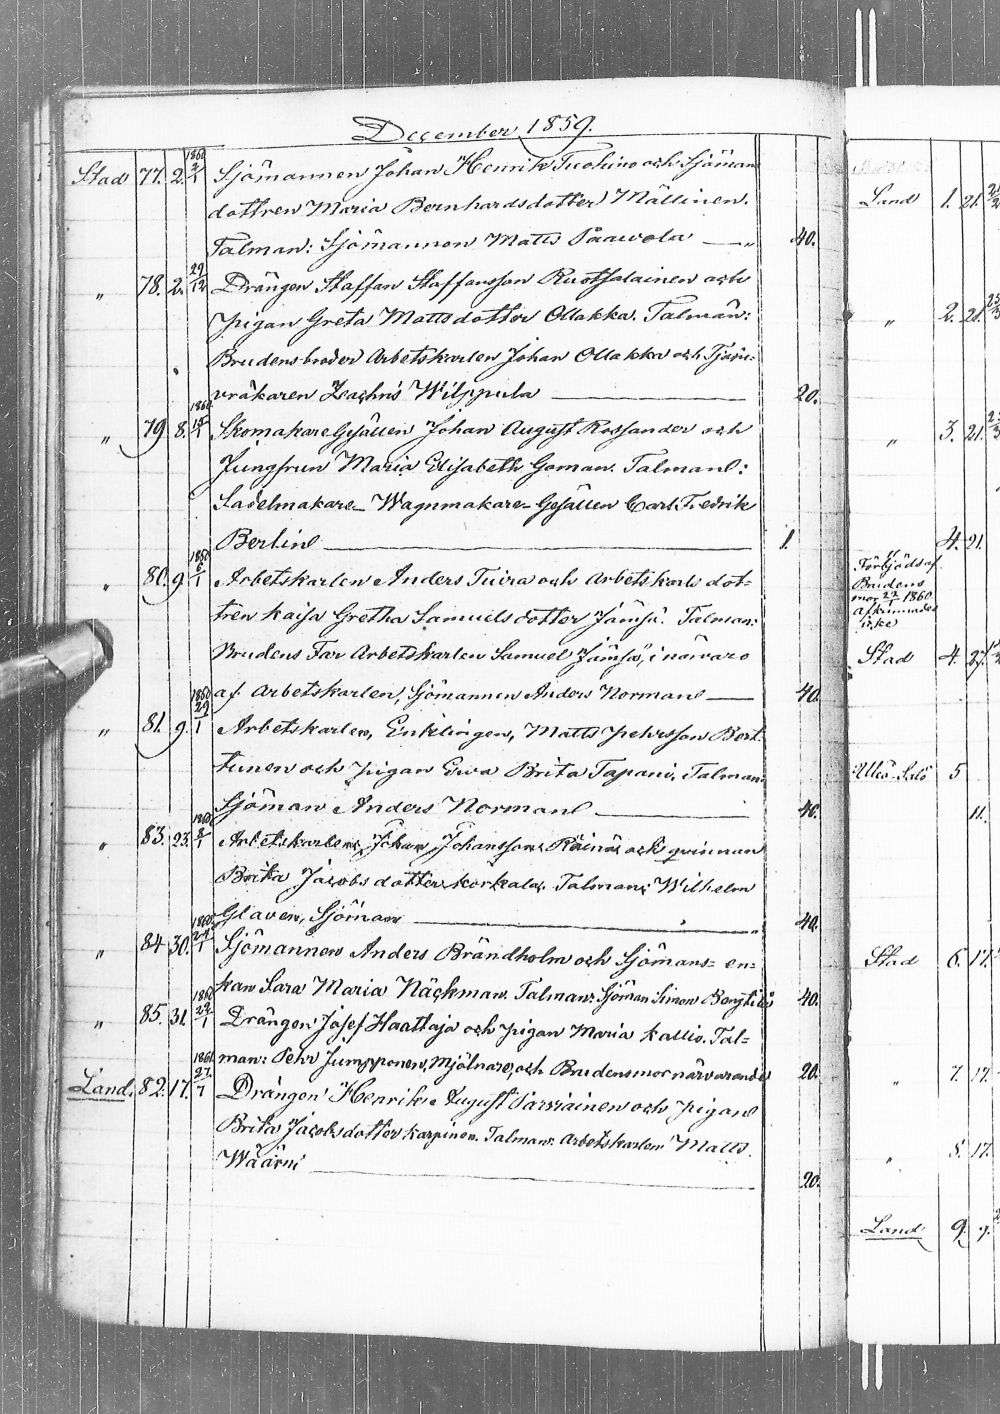 December 1859.
Stad 77. 2. 1860 2/1 Sjömannen Johan Henrik Tuohino och Sjöman
dottren Maria Bernhardsdotter Mällinen.
Talman: Sjömannen Matts Paawola — „ 40.
„ 78. 2. 29/12 Drängen Staffan Staffansson Ruotsalainen och
pigan Greta Mattsdotter Ollakka. Talman:
Brudens broder Arbetskarlen Johan Ollakka och Tjäru-
vräkaren Zachris Wilppula — 20.
„ 79 8. 1860 15/1 Skomakare Gesällen Johan August Rossander och
Jungfrun Maria Elisabeth Goman. Talman:
Sadelmakare- Wagnmakare- Gesällen Carl Fredrik
Berlin — 1.
„ 80. 9 1860 6/1 Arbetskarlen Anders Tuira och Arbetskarls dot-
tren Kaisa Gretha Samuelsdotter Jämsä. Talman:
Brudens Far Arbetskarlen Samuel Jämsä, i närvaro
af Arbetskarlen, Sjömannen Anders Norman — 40.
„ 81. 9. 1860 29/1 Arbetskarlen, Enklingen, Matts Pehrsson Bert-
tunen och pigan Ewa Brita Tapani, Talman:
Sjöman Anders Norman — 40.
„ 83. 23. 1860 8/1 Arbetskarlen Johan Johansson Räinä och qvinnan
Brita Jacobsdotter Korkala, Talman: Wilhelm
Glaven, Sjöman — „ 40.
„ 84 30. 1860 24/1 Sjömannen Anders Brändholm och Sjömans- en-
kan Sara Maria Näckman. Talman: Sjöman Simon Bengtils 40.
„ 85. 31. 1860 22/1 Drängen Josef Haattaja och pigan Maria Kallio. Tal-
man: Pehr Jumpponen, Mjölnare, och Brudens mor närvarande 20.
Land. 82. 17. 1861 27/7 Drängen Henrik August Parviainen och pigan
Brita Jacobsdotter Karpinen. Talman: Arbetskarlen Matts
Wäärni — 20.
Land 1. 21.
„ 2. 21.
„ 3. 21.
„ 4. 21.
Förbjöds af
Brudens
mor 22/1 1860
afkunnades
icke
Stad 4. 27.
Uleå-Salo 5
11.
Stad 6. 17.
„ 7. 17.
„ 8. 17.
Land 9. 9.